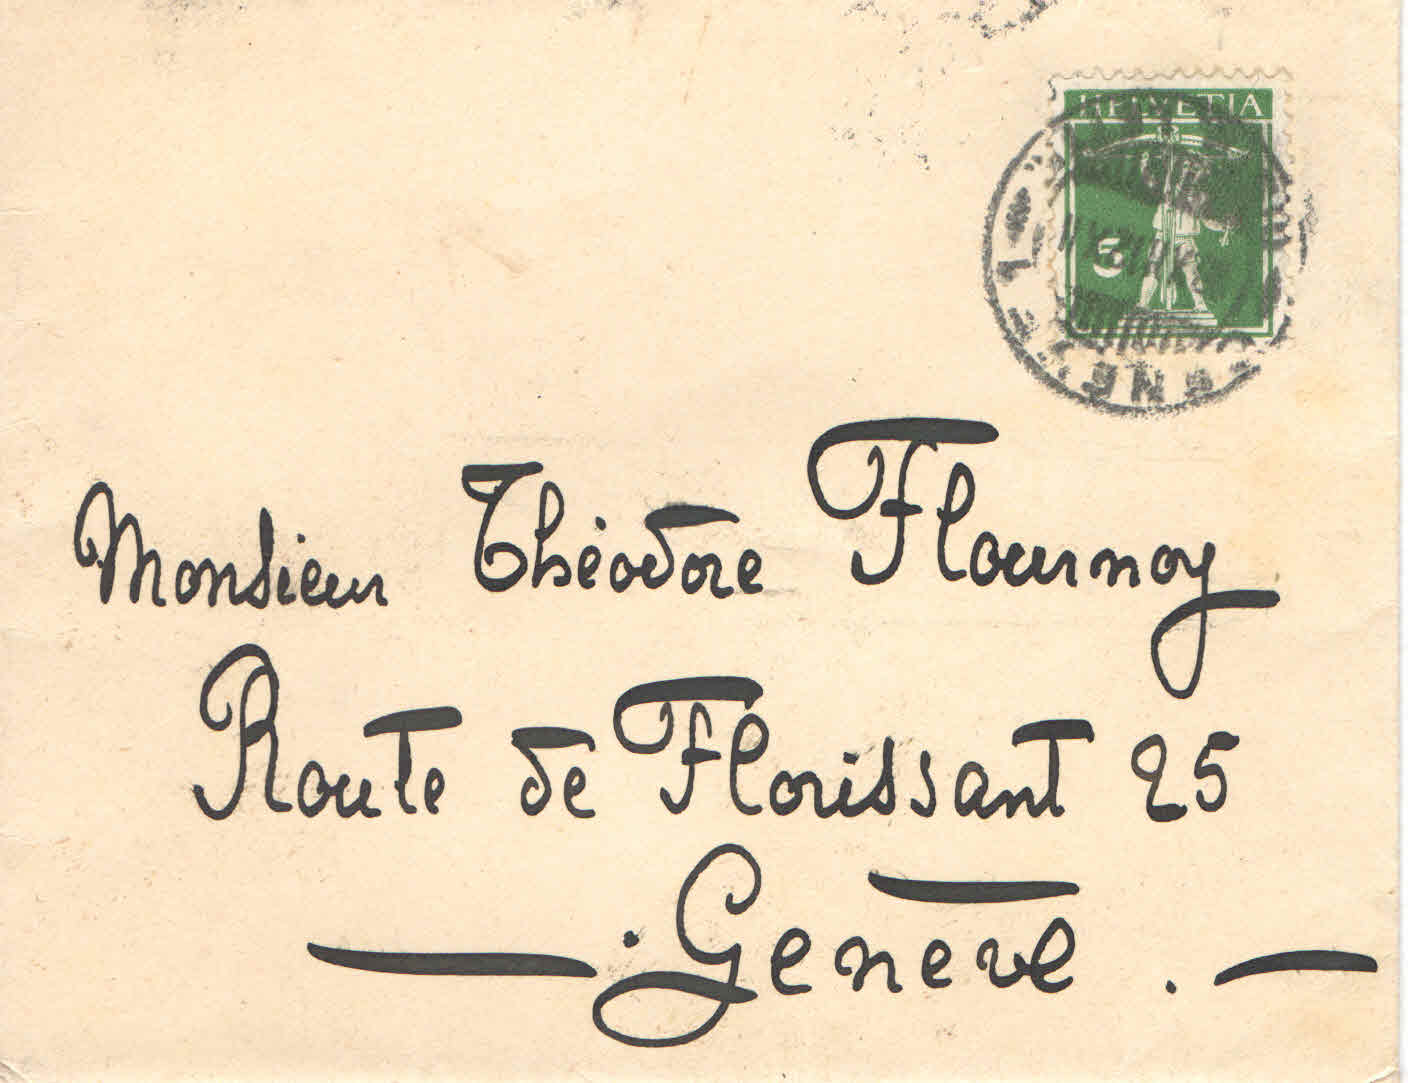 HELVETIA
5
Monsieur Théodore Flournoy
Route de Florissant 25
Genève.